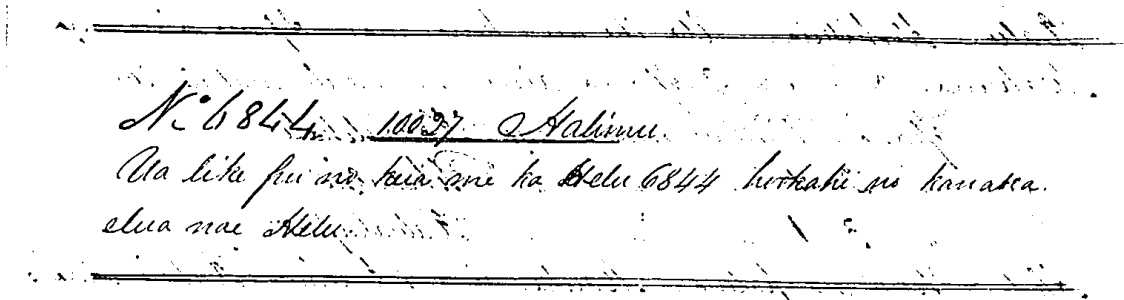 No 6844 10037 Halimu.
Ua like pu no keia me ka Helu 6844 hookahi no kanaka.
elua nae Helu.